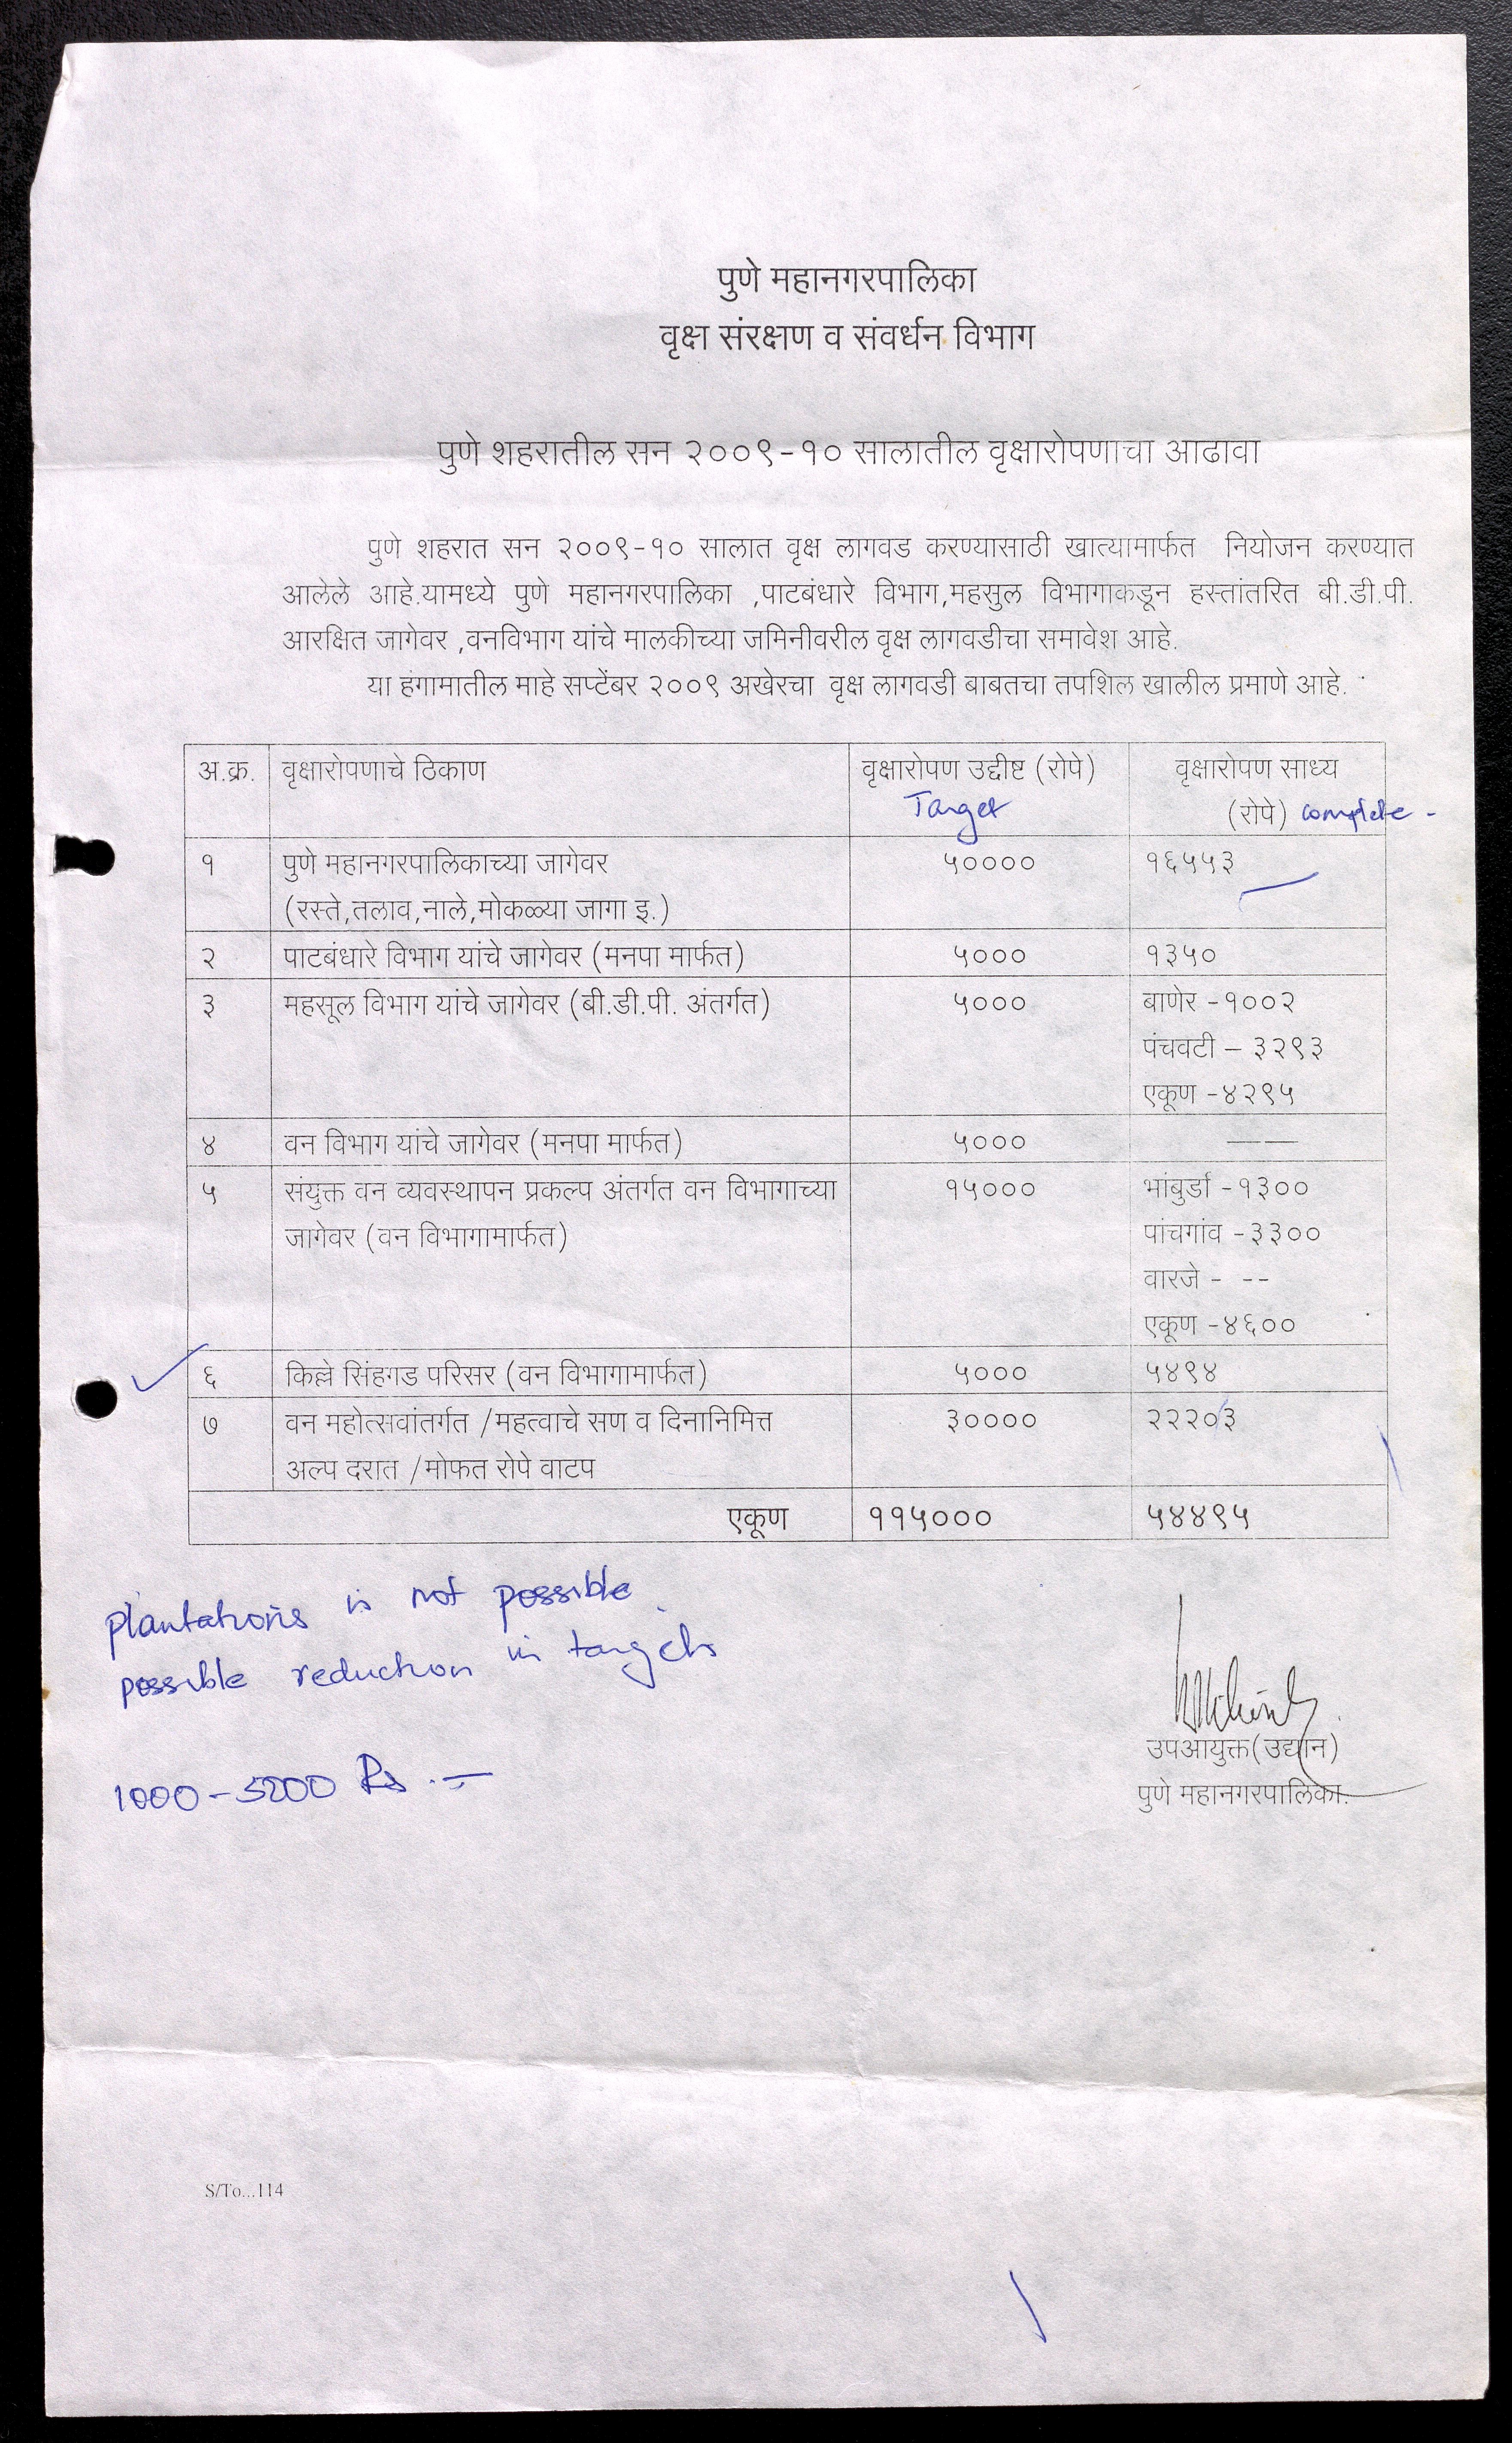 पुणे महानगरपालिका
वृक्ष संरक्षण व संवर्धन विभाग
पुणे शहरातील सन २००९-१० सालातील वृक्षारोपणाचा आढावा
पुणे शहरात सन २००९-१० सालात वृक्ष लागवड करण्यासाठी खात्यामार्फत नियोजन करण्यात
आलेले आहे.यामध्ये पुणे महानगरपालिका ,पाटबंधारे विभाग,महसुल विभागाकडून हस्तांतरित बी.डी.पी.
आरक्षित जागेवर ,वनविभाग यांचे मालकीच्या जमिनीवरील वृक्ष लागवडीचा समावेश आहे.
या हंगामातील माहे सप्टेंबर २००९ अखेरचा वृक्ष लागवडी बाबतचा तपशिल खालील प्रमाणे आहे.
अ.क्र. वृक्षारोपणाचे ठिकाण वृक्षारोपण उद्दीष्ट (रोपे) वृक्षारोपण साध्य
Target (रोपे) complete -
१ पुणे महानगरपालिकाच्या जागेवर ५०००० १६५५३
(रस्ते,तलाव,नाले,मोकळ्या जागा इ.)
२ पाटबंधारे विभाग यांचे जागेवर (मनपा मार्फत) ५००० १३५०
३ महसूल विभाग यांचे जागेवर (बी.डी.पी. अंतर्गत) ५००० बाणेर -१००२
पंचवटी – ३२९३
एकूण -४२९५
४ वन विभाग यांचे जागेवर (मनपा मार्फत) ५००० ——
५ संयुक्त वन व्यवस्थापन प्रकल्प अंतर्गत वन विभागाच्या १५००० भांबुर्डा -१३००
जागेवर (वन विभागामार्फत) पांचगांव -३३००
वारजे - --
एकूण -४६००
६ किल्ले सिंहगड परिसर (वन विभागामार्फत) ५००० ५४९४
७ वन महोत्सवांतर्गत /महत्वाचे सण व दिनानिमित्त ३०००० २२२०३
अल्प दरात /मोफत रोपे वाटप
एकूण ११५००० ५४४९५
plantations is not possible.
possible reduction in targets
1000-5200 Rs .-
उपआयुक्त(उद्यान)
पुणे महानगरपालिका.
S/To...114